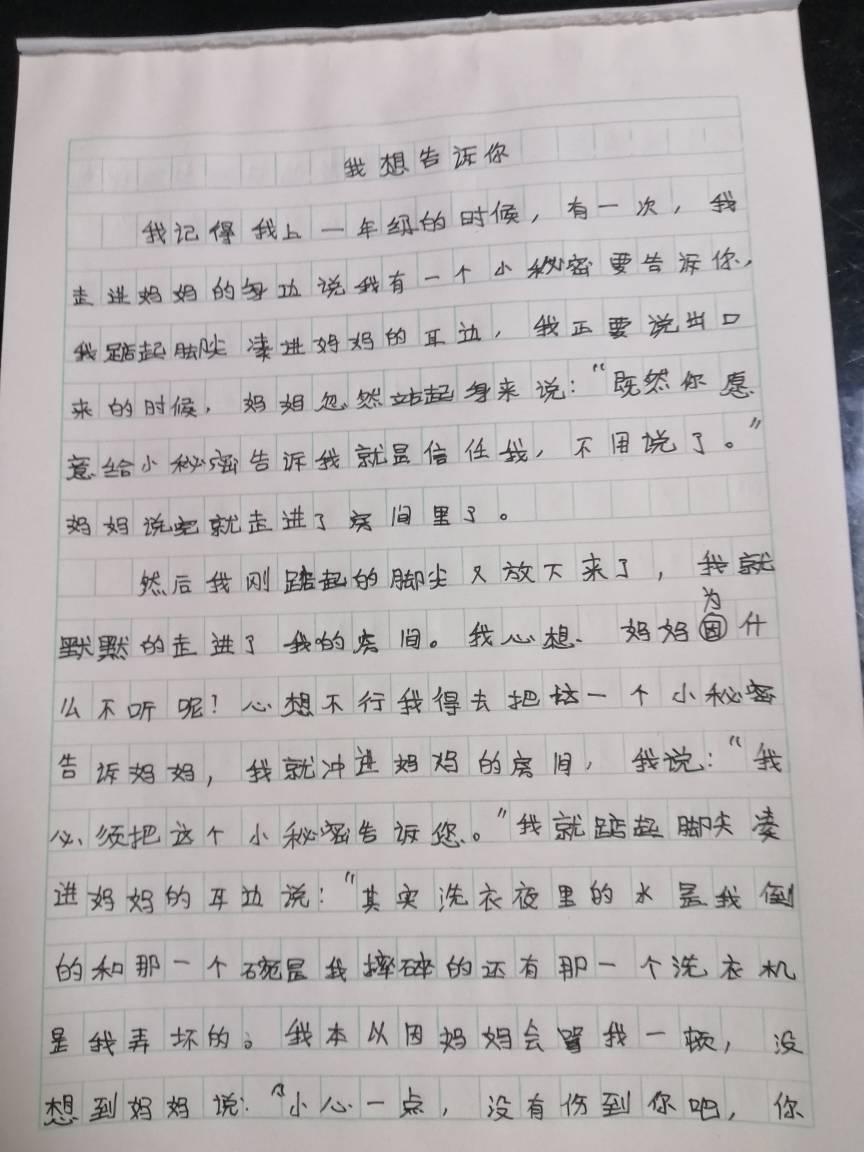 我想告诉你
我记得我上一年级的时候，有一次，我
走进妈妈的身边说我有一个小秘密要告诉你，
我踮起脚尖凑进妈妈的耳边，我正要说出口
来的时候，妈妈忽然站起身来说：“既然你愿
意给小秘密告诉我就是信任我，不用说了。”
妈妈说完就走进了房间里了。
然后我刚踮起的脚尖又放下来了，我就
默默的走进了我的房间。我心想、妈妈为什
么不听呢！心想不行我得去把这一个小秘密
告诉妈妈，我就冲进妈妈的房间，我说：“我
必须把这个小秘密告诉您。”我就踮起脚尖凑
进妈妈的耳边说：“其实洗衣夜里的水是我倒
的和那一个碗是我摔碎的还有那一个洗衣机
是我弄坏的。我本以因妈妈会骂我一顿，没
想到妈妈说：“小心一点，没有伤到你吧，你